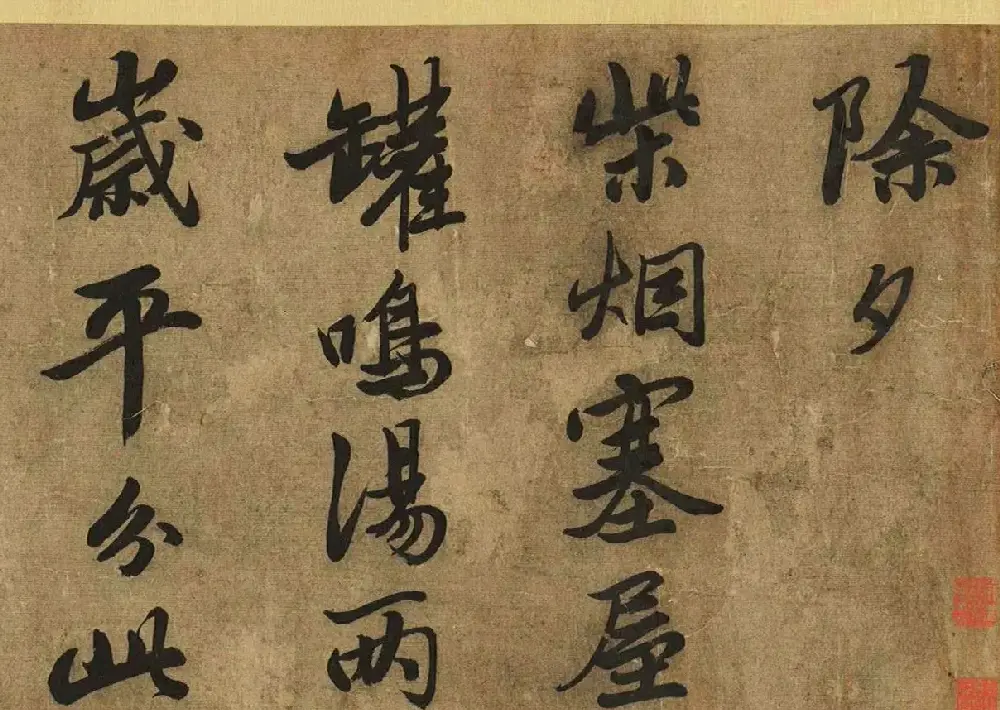 除夕
柴烟塞屋
罐鳴湯兩
歳平分此